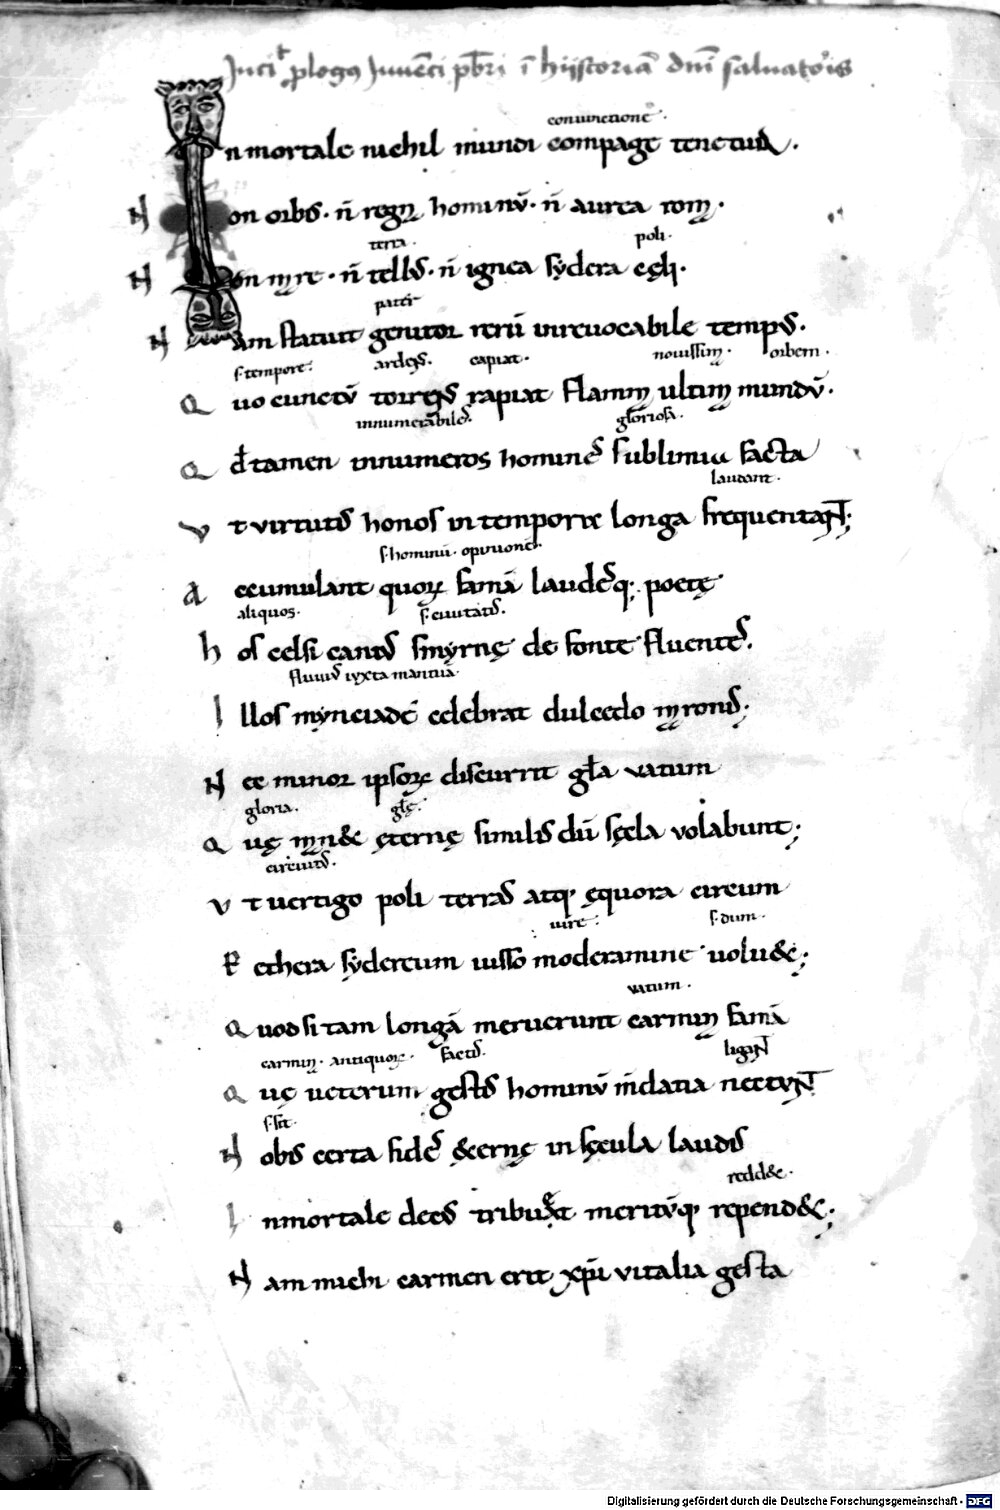 Incipit plogus Iuuenci pbri ī hijstoriā dnī saluatoris
coniunctione·
In mortale nichil mundi compage tenetur·
Non orbis· n̄ regnȝ hominū· n̄ aurea rom̨·
terra· poli·
Non mare· n̄ tellus· n̄ ignea sydera cęli·
patri
Nam statuit genitor rerū inreuocabile tempus·
s· tempore· ardens· capiat· nouissim̨· orbem·
Quo cunctū torrens rapiat flamm̨ ultim̨ mundū·
innumerabiles· gloriosa·
Qd tamen innumeros homines sublimia facta
laudant·
Vt virtutis honos in tempora longa frequentant;
s· hominū· opinione·
Accumulant quorȝ famā laudesq; poetę
aliquos· s· ciuitatis·
hos celsi cantus smyrnę de fonte fluentes·
fluuius iuxta mantuā·
Illos mynciadę celebrat dulcedo maronis;
Nec minor ipsorȝ discurrit gl̄a vatum
gloria· gl̄ę·
Quę man& ęternę similis dū sęcla volabunt;
circuitus·
Vt uertigo poli terras atq; ęquora circum
iure· s· dum·
Aethera sydereum iusso moderamine uolu&;
vatum·
Quod si tam longā meruerunt carmin̨ famā
carmin̨· antiquorȝ· factis· ligant
Quę ueterum gestis hominū mendatia nectunt
s· sit·
Nobis certa fides &ernę in sęcula laudis
redd&·
Inmortale decus tribuet meritūq; repend&;
Nam michi carmen erit xp̄i vitalia gesta
Digitalisierung gefördert durch die Deutsche Forschungsgemeinschaft - DFG